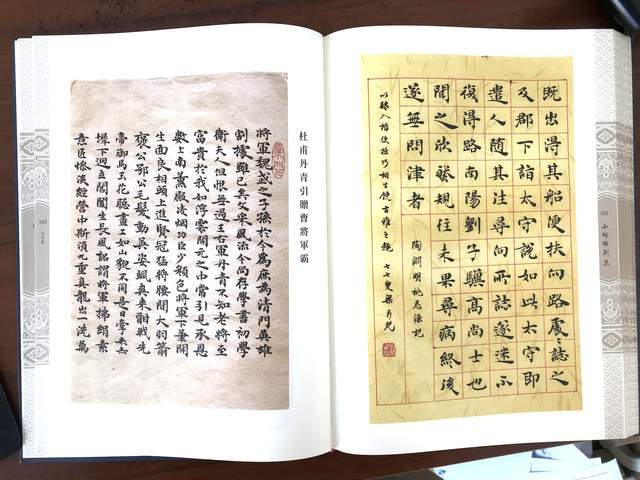 既出得其船便扶向路處處誌之
及郡下詣太守說如此太守即
遣人隨其往尋向所誌遂迷不
復得路南陽劉子驥高尚士也
聞之欣然規往未果尋病終後
遂無問津者
陶淵明桃花源記
以隸入楷使拙巧相生饒古雅之趣 七七叟梁
杜甫丹青引贈曹將軍霸
將軍魏武之子孫於今為庶為清門英雄
割據雖已矣文采風流今尚存學書初學
衛夫人但恨無過王右軍丹青不知老將至
富貴於我如浮雲開元之中常引見承恩
數上南薰殿凌烟功臣少顏色將軍下筆開
生面良相頭上進賢冠猛將腰間大羽箭
褒公鄂公毛髮動英姿颯爽來酣戰先
帝御馬玉花驄畫工如山貌不同是日牽來赤
墀下迥立閶闔生長風詔謂將軍拂絹素
意匠慘澹經營中斯須九重真龍出一洗萬